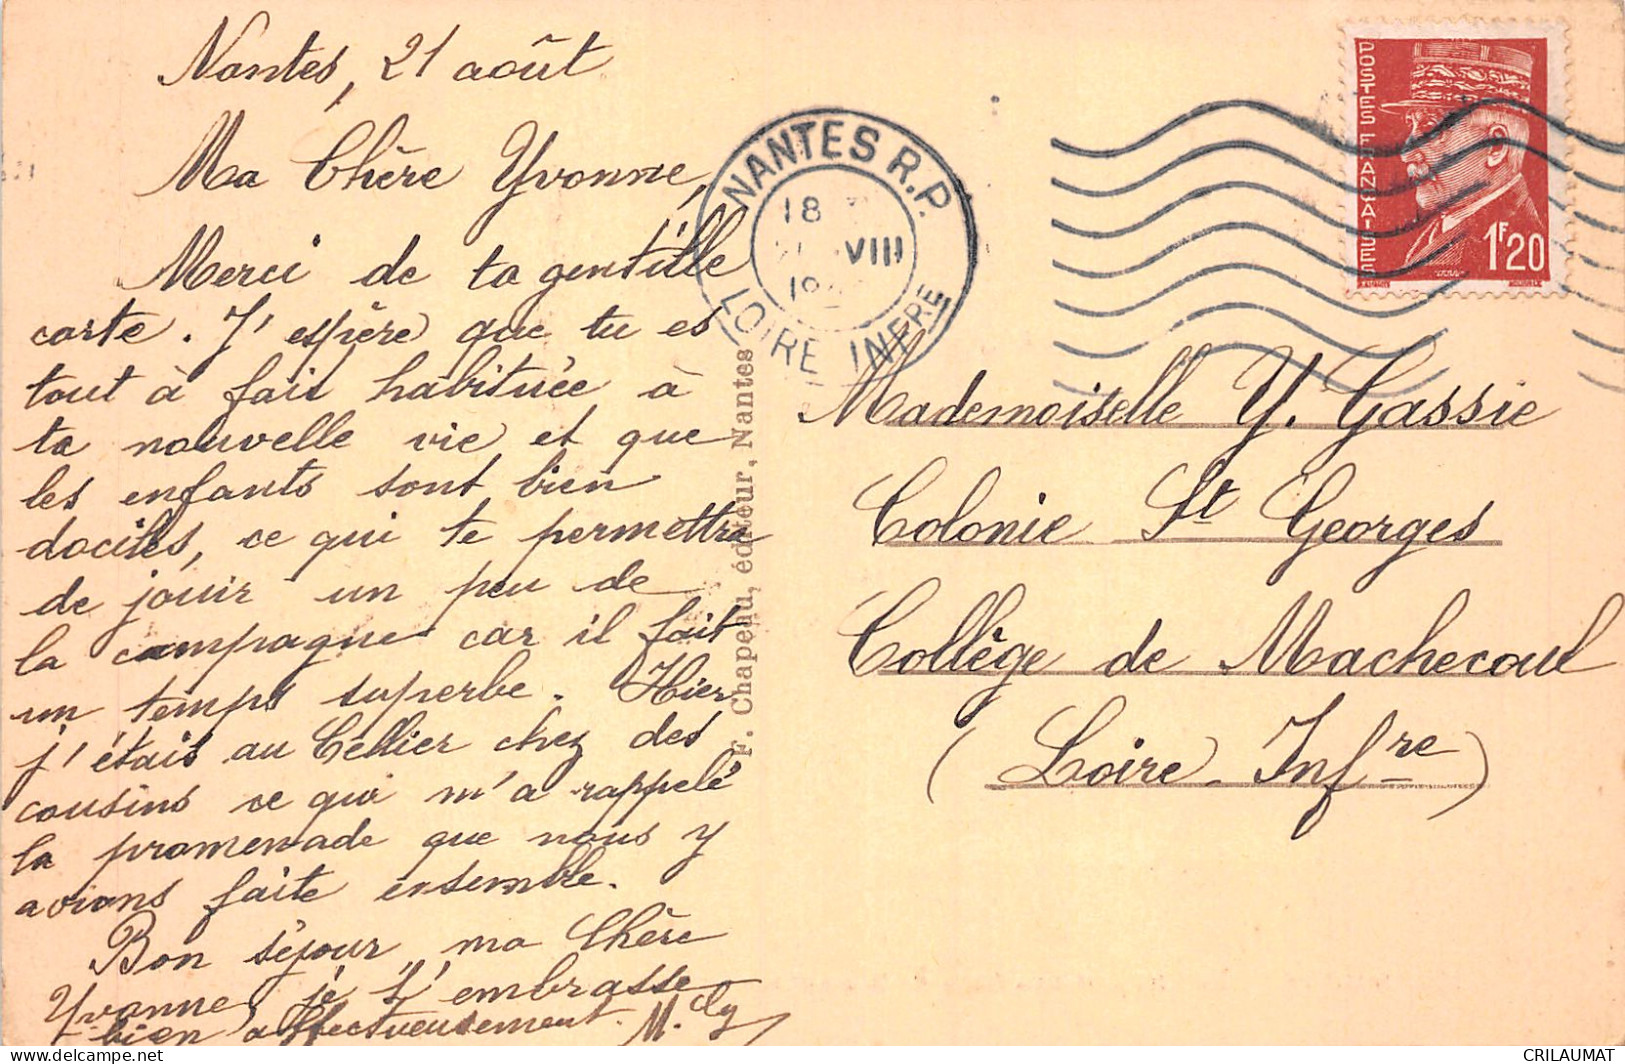 Nantes, 21 août
Ma Chère Yvonne,
Merci de ta gentille
carte. J'espère que tu es
tout à fait habituée à
ta nouvelle vie et que
les enfants sont bien
dociles, ce qui te permettra
de jouir un peu de
la campagne car il fait
un temps superbe. Hier
j'étais au Cellier chez des
cousins ce qui m'a rappelé
la promenade que nous y
avions faite ensemble.
Bon séjour, ma Chère
Yvonne, je t'embrasse
bien affectueusement.
F. Chapeau, éditeur, Nantes
NANTES R.P.
18
VIII
LOIRE INFRE
POSTES FRANÇAISES
1F20
Mademoiselle Y. Gassie
Colonie St Georges
Collège de Machecoul
(Loire-Infre)
CRILAUMAT
delcampe.net